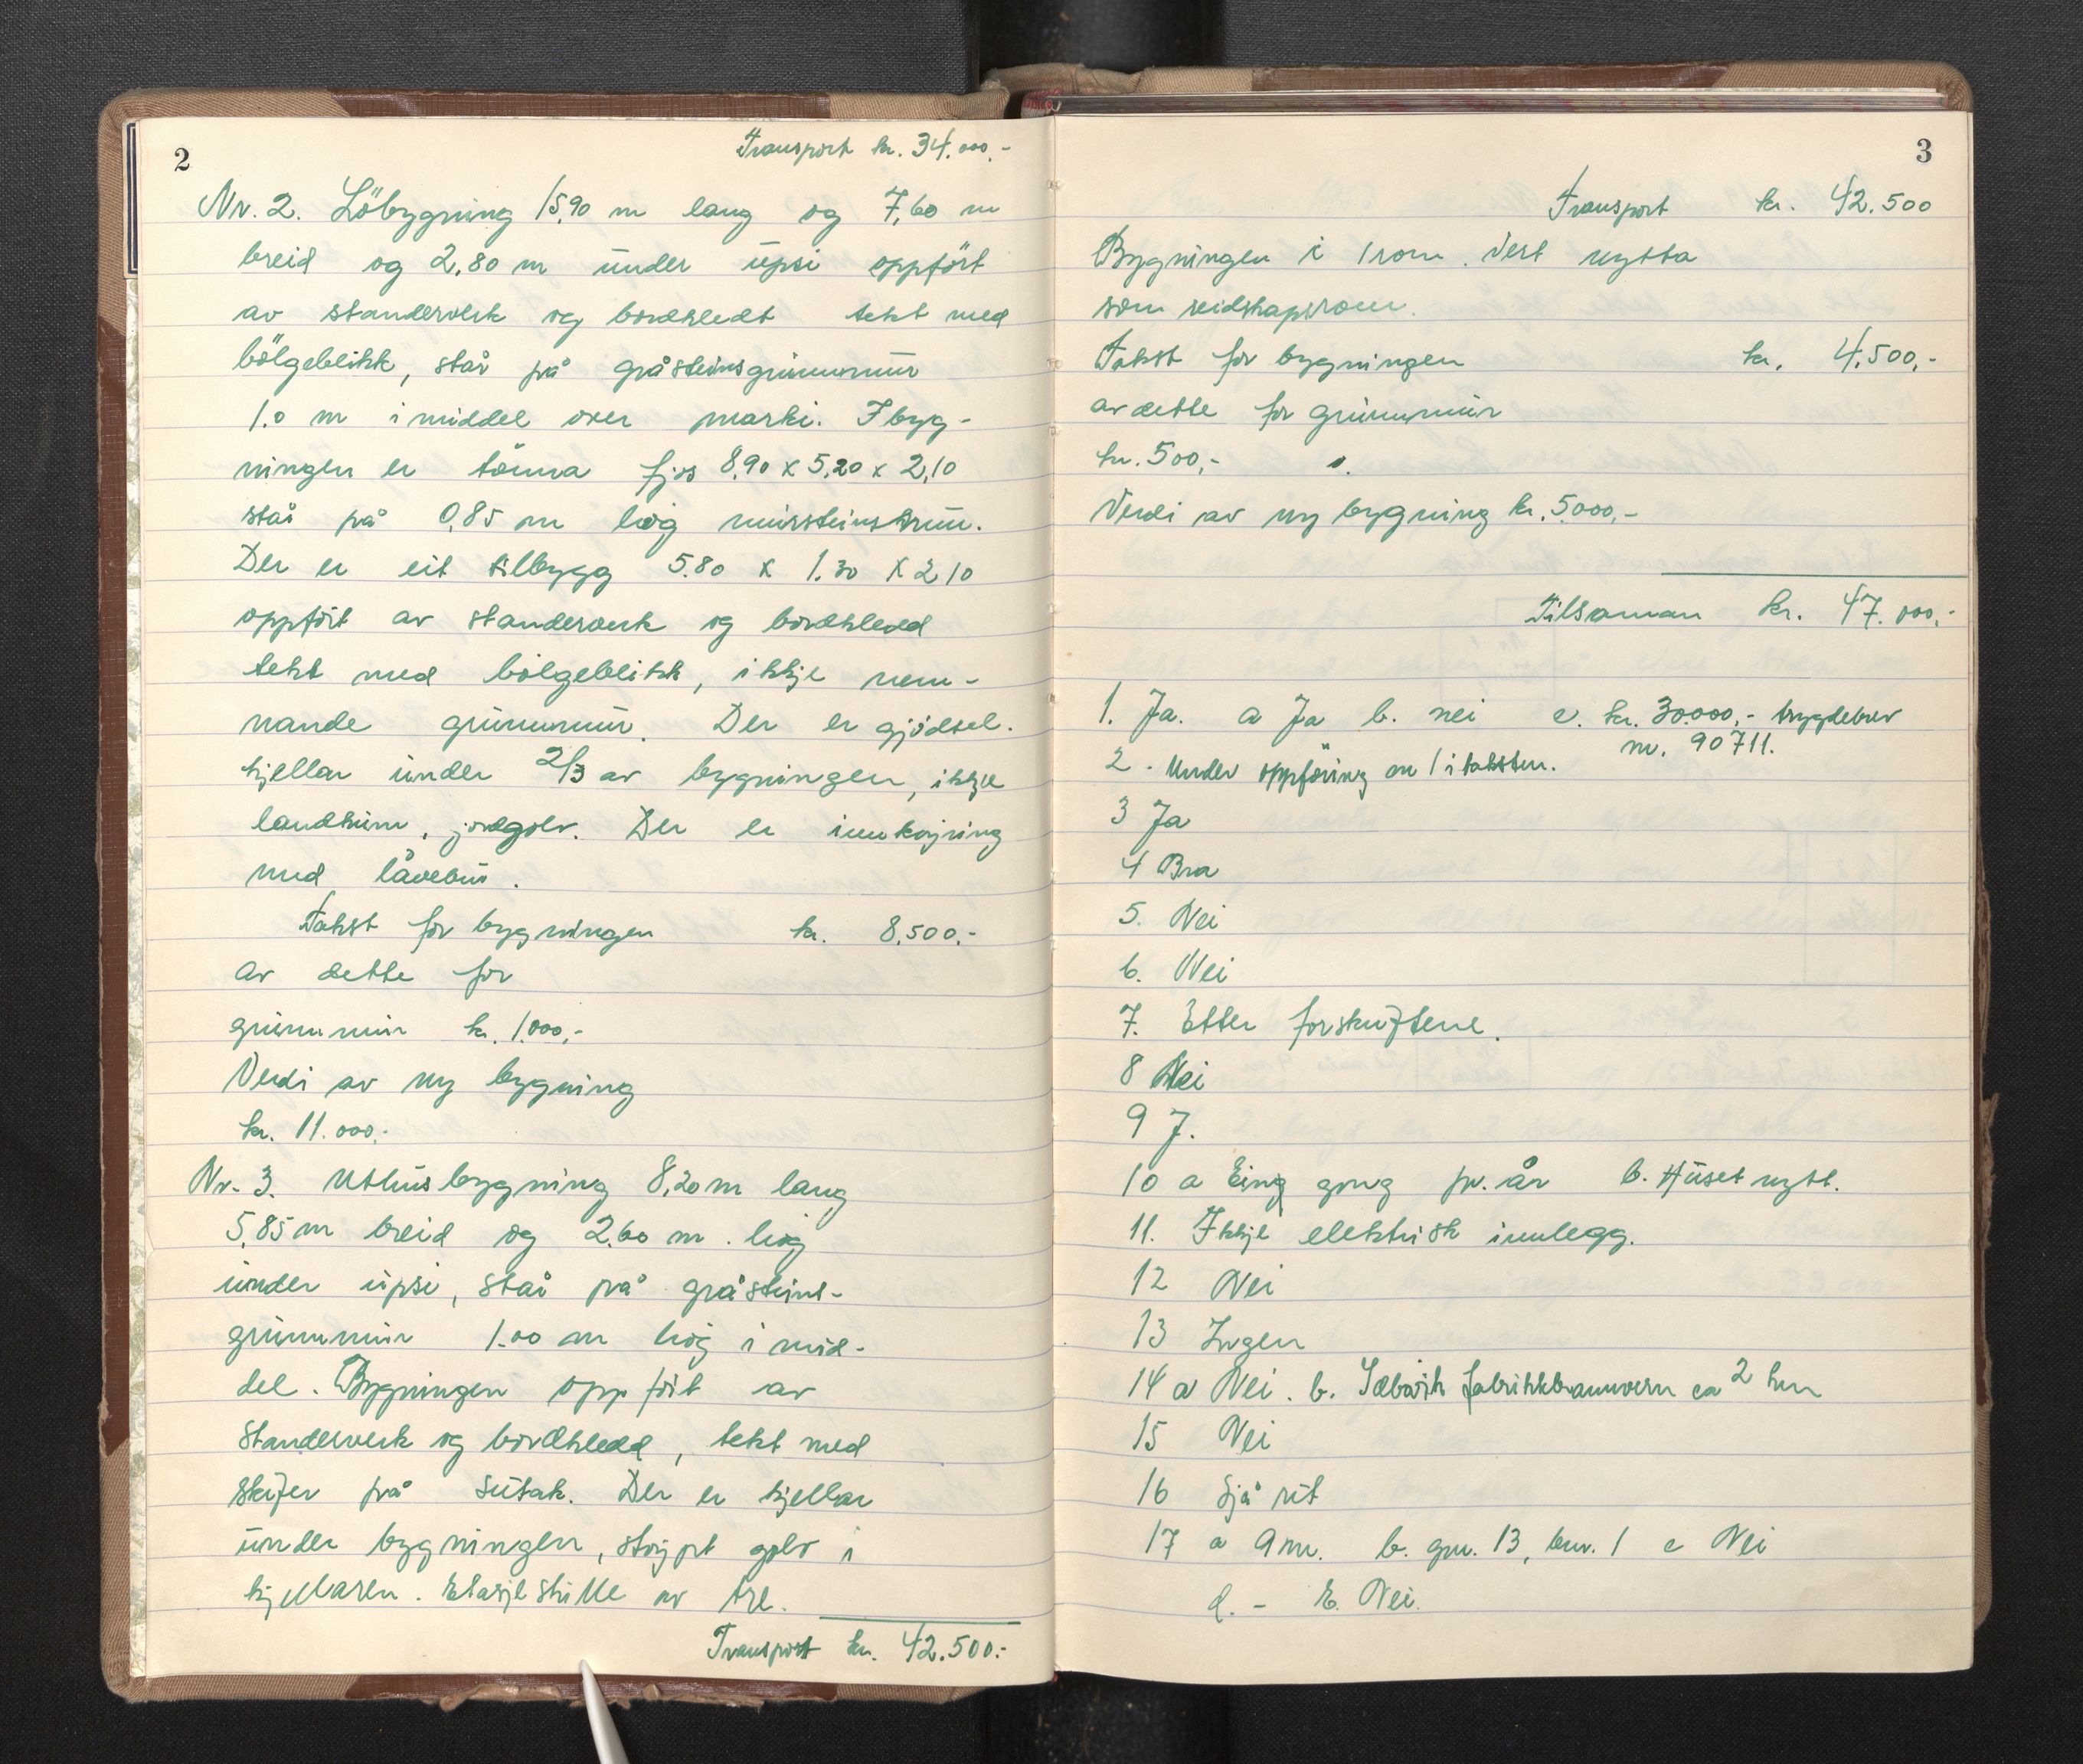 2
Transport kr. 34.000,-
Nr. 2. Löbygning 15,90 m lang og 7,60 m
breid og 2,80 m under upsi oppfört
av standerverk og bordkledt tekt med
bölgeblikk, står på gråsteinsgrunnmur
1.0 m i middel over marki. I byg-
ningen er tömra fjos 8,90 x 5,20 x 2,10
står på 0,85 m høg mursteinsbrun.
Der er eit tilbygg 5.80 x 1.30 x 2,10
oppfört av standerverk og bordkledd
tekt med bölgeblikk, ikkje nem-
nande grunnmur. Der er gjödsel-
kjellar under 2/3 av bygningen, ikkje
landkum, jordgolv. Der er innkøjring
med låvebru.
Takst for bygningen kr. 8,500.-
av dette for
grunnmur kr. 1.000,-
Verdi av ny bygning
kr. 11.000,-
Nr. 3. Uthusbygning 8,20 m lang
5,85 m breid og 2.60 m. høg
under upsi, står på gråsteins-
grunnmur 1.00 m høg i mid-
del. Bygningen oppfört av
standerverk og bordkledd, tekt med
skifer på sutak. Der er kjellar
under bygningen, støypt golv i
kjellaren. Etasjeskille av tre.
Transport kr. 42.500.-
3
Transport kr. 42.500
Bygningen i 1 rom. Vert nytta
som reidskapsrom.
Takst for bygningen kr. 4.500,-
av dette for grunnmur
kr. 500,-
Verdi av ny bygning kr. 5000,-
Tilsaman kr. 47.000,-
1. Ja. a Ja b. nei c. kr. 30.000,- trygdebrev
nr. 90711.
2. Under oppföring nr 1 i taksten.
3 Ja
4 Bra
5. Nei
6. Nei
7. Etter forskriftene.
8 Nei
9 J.
10 a Eing gong pr. år b. Huset nytt.
11. Ikkje elektrisk innlegg.
12 Nei
13 Ingen
14 a Nei. b. fabrikkbrannvern ca 2 km
15 Nei
16 Sjå rit
17 a 9 m. b. gnr. 13, bnr. 1 c Nei
d. - E. Nei.